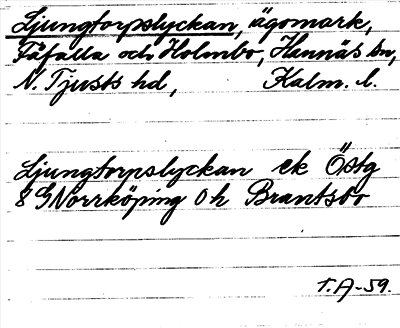 Ljungtorpslyckan, ägomark,
Fåfalla och Holmbo, Hannäs sn,
N. Tjusts hd, Kalm. l.
Ljungtorpslyckan ek Östg
8 G Norrköping 0 h Brantsbo
T.A-59.